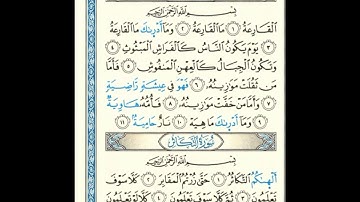 بِسْمِ ٱللَّهِ ٱلرَّحْمَٰنِ ٱلرَّحِيمِ
ٱلْقَارِعَةُ ١ مَا ٱلْقَارِعَةُ ٢ وَمَآ أَدْرَىٰكَ مَا ٱلْقَارِعَةُ
٣ يَوْمَ يَكُونُ ٱلنَّاسُ كَٱلْفَرَاشِ ٱلْمَبْثُوثِ ٤
وَتَكُونُ ٱلْجِبَالُ كَٱلْعِهْنِ ٱلْمَنفُوشِ ٥ فَأَمَّا
مَن ثَقُلَتْ مَوَٰزِينُهُۥ ٦ فَهُوَ فِى عِيشَةٍ رَّاضِيَةٍ
٧ وَأَمَّا مَنْ خَفَّتْ مَوَٰزِينُهُۥ ٨ فَأُمُّهُۥ هَاوِيَةٌ
٩ وَمَآ أَدْرَىٰكَ مَا هِيَهْ ١٠ نَارٌ حَامِيَةٌۢ ١١
سُورَةُ التَّكَاثُرِ
بِسْمِ ٱللَّهِ ٱلرَّحْمَٰنِ ٱلرَّحِيمِ
أَلْهَىٰكُمُ ٱلتَّكَاثُرُ ١ حَتَّىٰ زُرْتُمُ ٱلْمَقَابِرَ ٢ كَلَّا سَوْفَ
تَعْلَمُونَ ٣ ثُمَّ كَلَّا سَوْفَ تَعْلَمُونَ ٤ كَلَّا لَوْ تَعْلَمُونَ